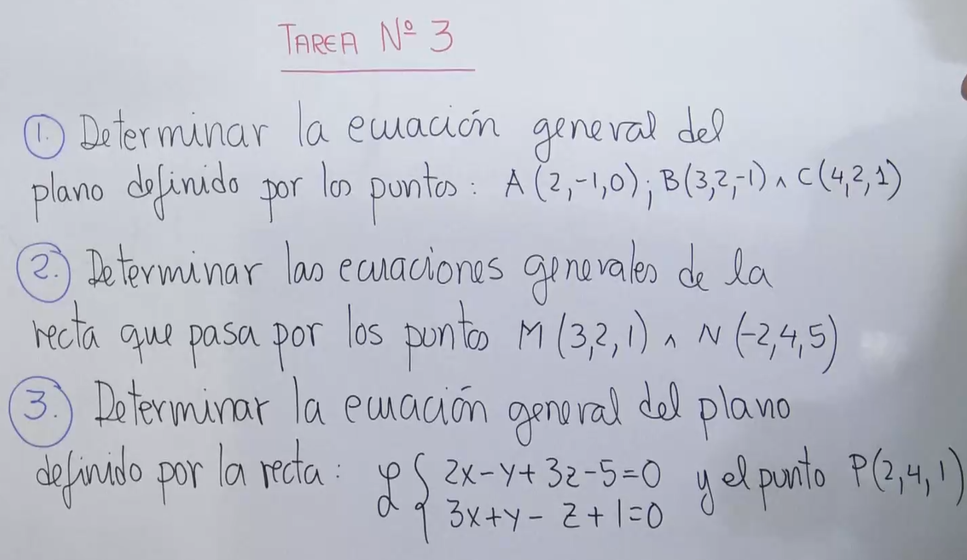 TAREA Nº 3
1. Determinar la ecuación general del
plano definido por los puntos: A(2,-1,0); B(3,2,-1) ∧ C(4,2,1)
2. Determinar las ecuaciones generales de la
recta que pasa por los puntos M(3,2,1) ∧ N(-2,4,5)
3. Determinar la ecuación general del plano
definido por la recta: φ { 2x-y+3z-5=0 y el punto P(2,4,1)
3x+y-z+1=0